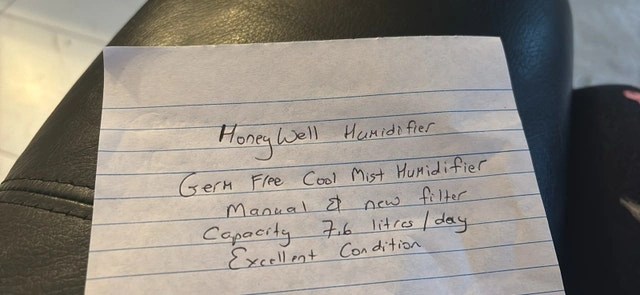 HoneyWell Humidifier
Germ Free Cool Mist Humidifier
Manual & new filter
Capacity 7.6 litres/day
Excellent Condition